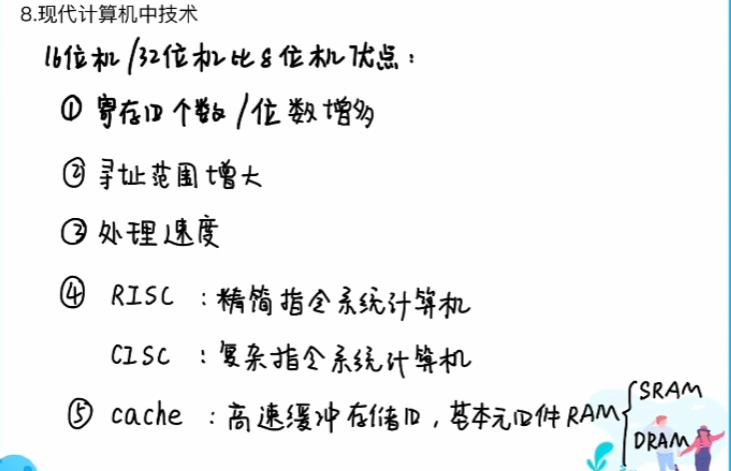 8.现代计算机中技术
16位机/32位机比8位机优点:
① 寄存口个数/位数增多
② 寻址范围增大
③ 处理速度
④ RISC :精简指令系统计算机
CISC :复杂指令系统计算机
⑤ cache :高速缓冲存储口,基本元口件RAM{SRAM
DRAM